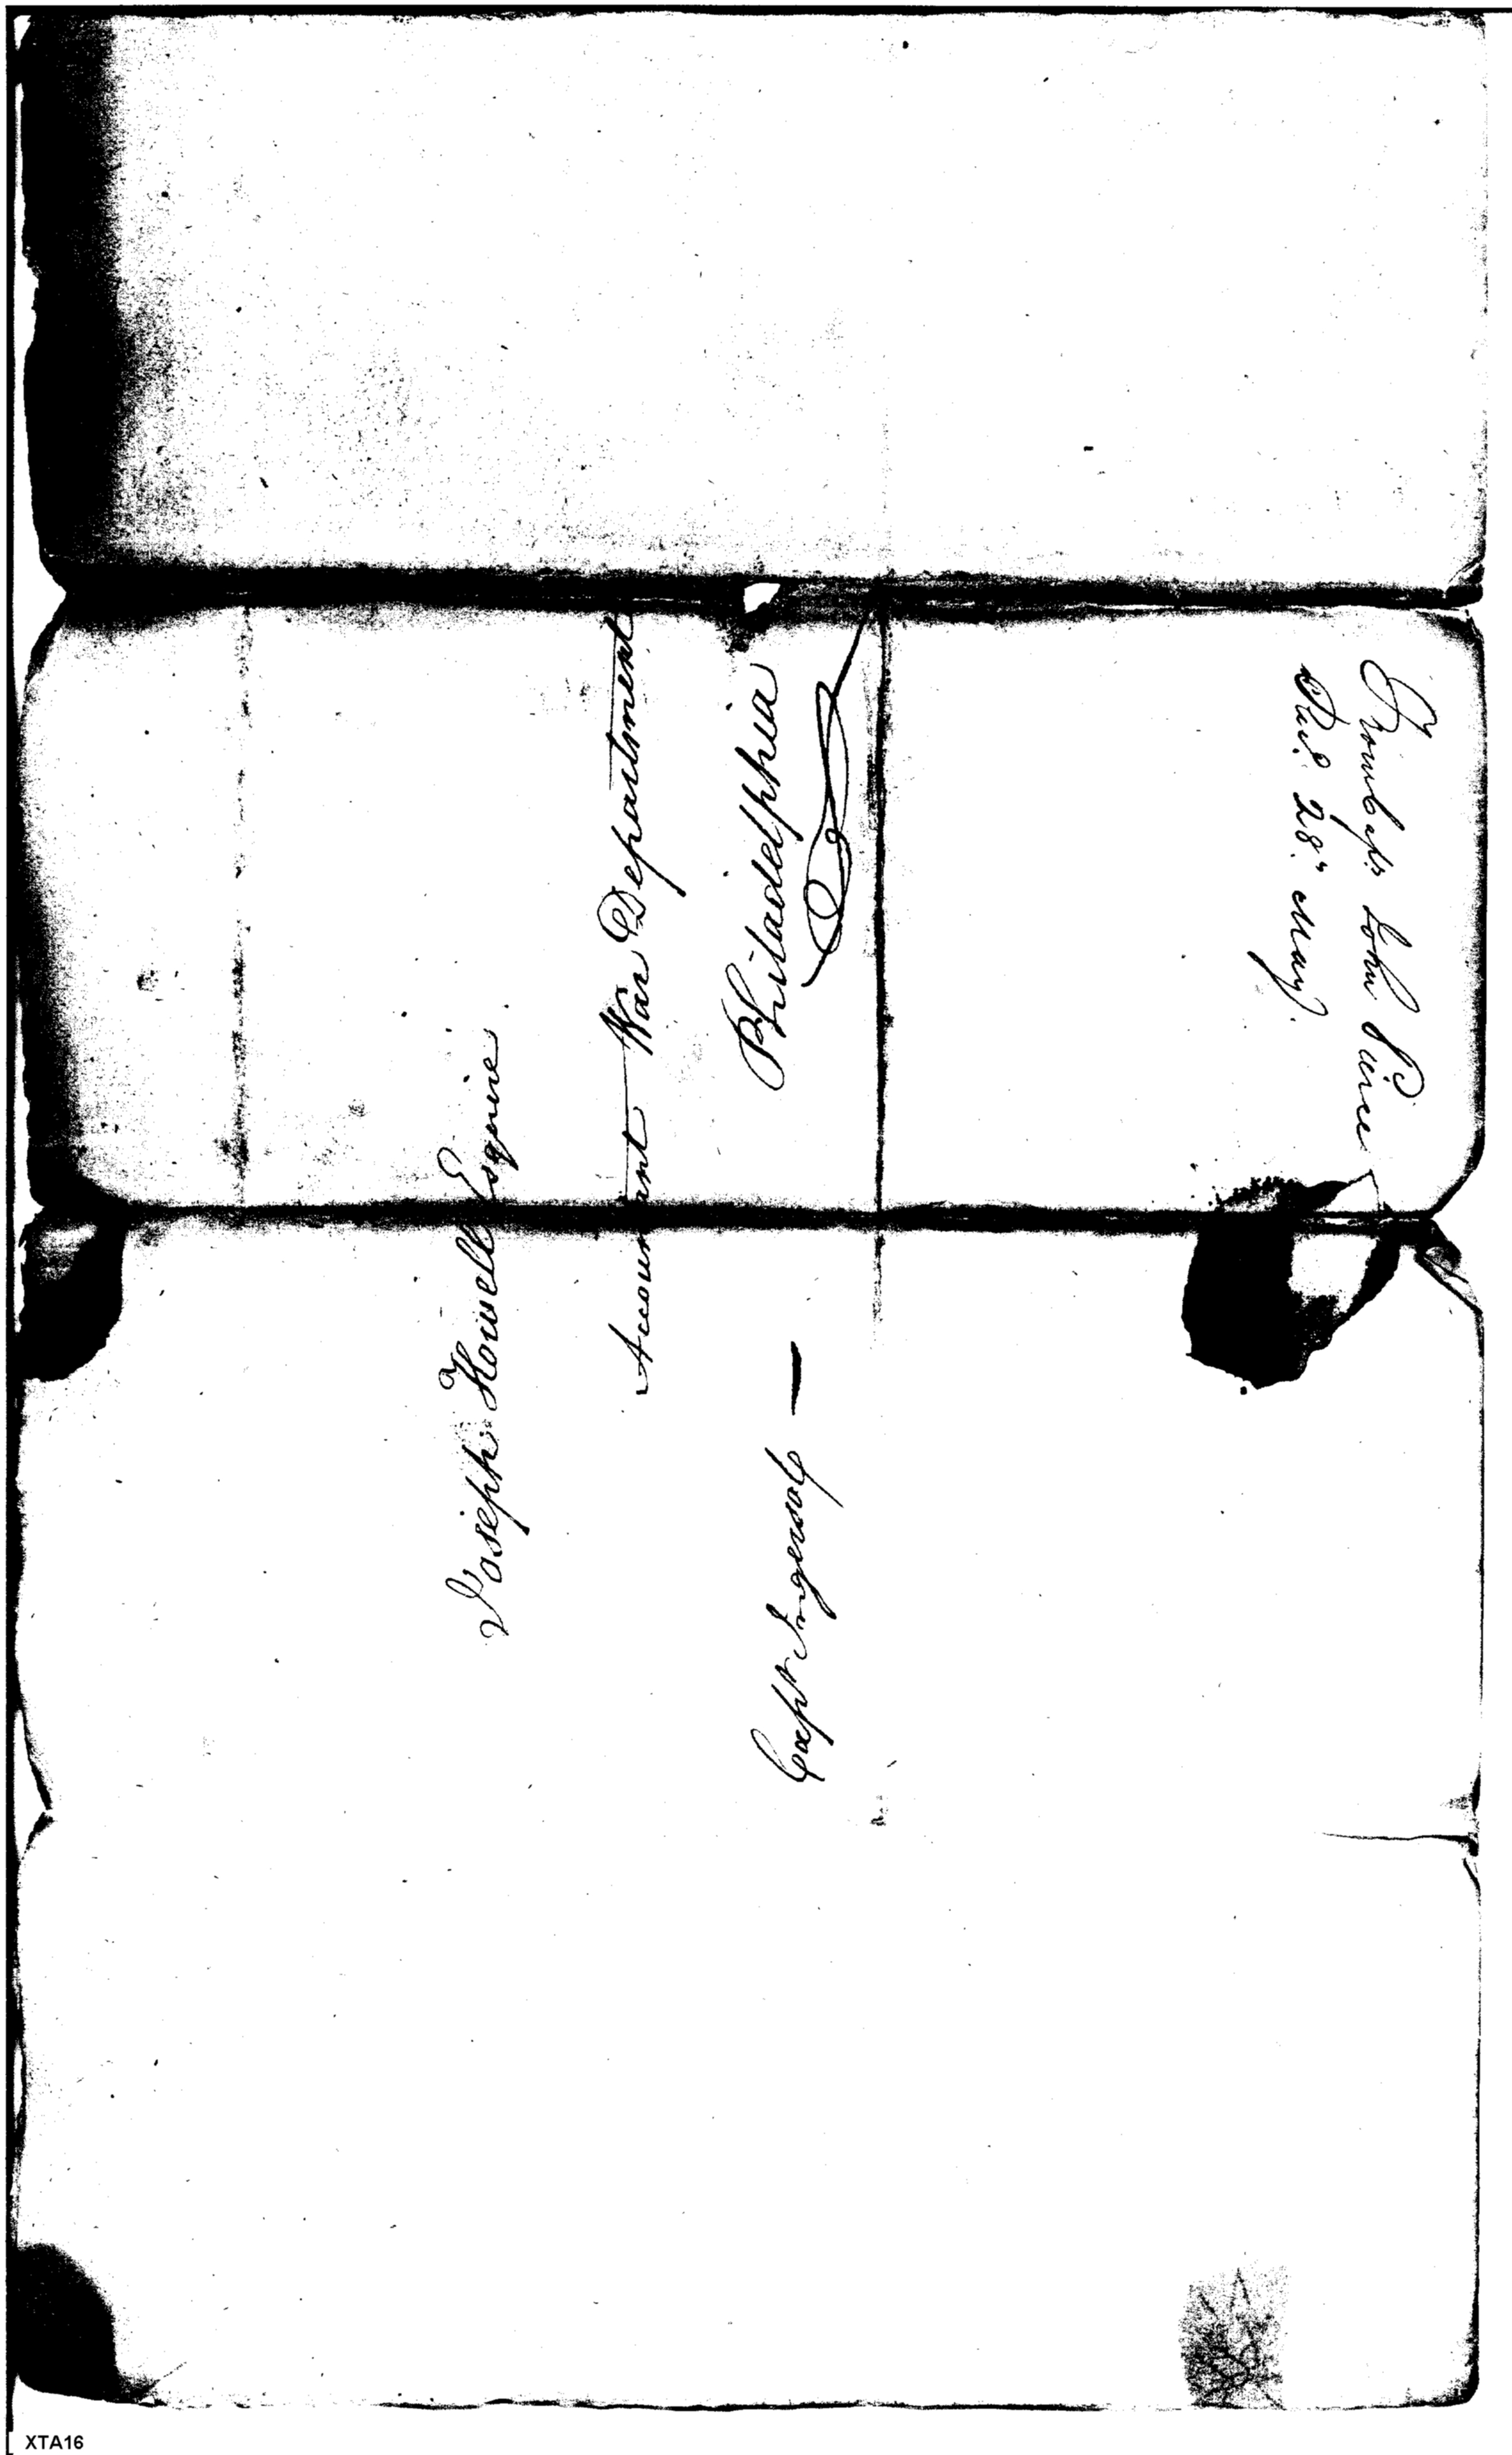 Joseph Howell Esquire
Accountant War Department
Philadelphia
Capt Ingersol —
From Capt. John Peirce
Rec.d 28.th May.
XTA16